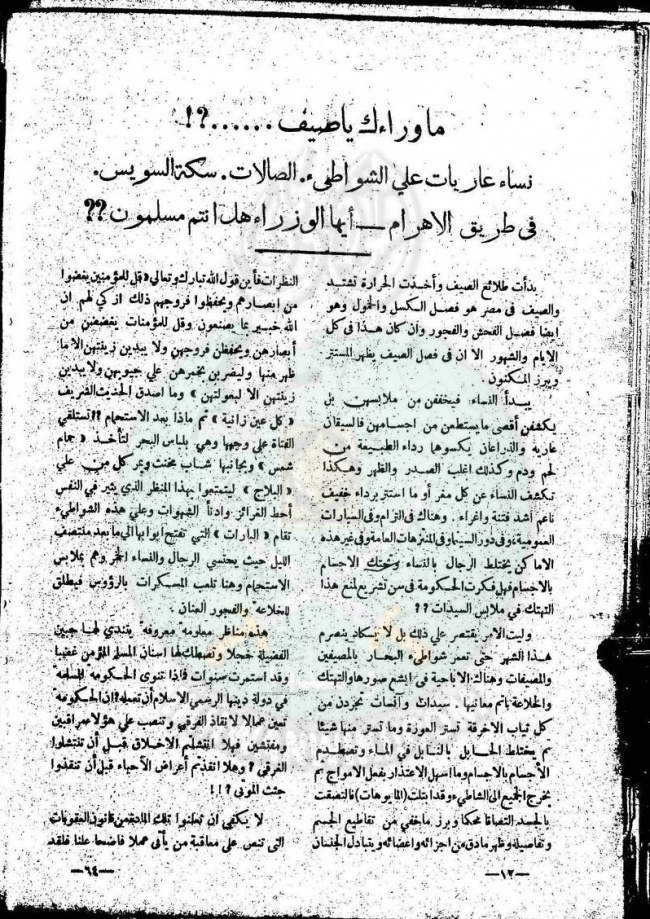 ما وراءك يا صيف ......؟!
نساء عاريات على الشواطىء. الصالات. سكة السويس.
فى طريق الاهرام — أيها الوزراء هل انتم مسلمون ؟؟
بدأت طلائع الصيف وأخذت الحرارة تشتد
والصيف فى مصر هو فصل الكسل والخمول وهو
ايضا فصل الفحش والفجور وان كان هذا فى كل
الايام والشهور الا ان فى فصل الصيف يظهر المستتر
ويبرز المكنون .
يبدأ النساء فيخففن من ملابسهن بل
يكشفن أقصى ما يستطعن من اجسامهن فالسيقان
عارية والذراعان يكسوها رداء الطبيعة من
لحم ودم وكذلك اغلب الصدر والظهر وهكذا
تكشف النساء عن كل مغر أو ما استتر برداء خفيف
ناعم أشد فتنة واغراء . وهناك فى الترام وفى السيارات
العمومية وفى دور السينما وفى المتنزهات العامة وفى غير هذه
الاماكن يختلط الرجال بالنساء وتحتك الاجسام
بالاجسام فهل فكرت الحكومة فى سن تشريع لمنع هذا
التهتك فى ملابس السيدات ؟؟
وليت الامر يقتصر على ذلك بل لا يكاد ينصرم
هذا الشهر حتى تعمر شواطىء البحار بالمصيفين
والمصيفات وهناك الاباحية فى ابشع صورها والتهتك
والخلاعة باتم معانيها . سيدات وآنسات تجردن من
كل ثياب الا خرقة تستر العورة وما تستر منها شيئا
ثم يختلط الحابل بالنابل فى الماء وتصطدم
الأجسام بالاجسام وما اسهل الاعتذار بفعل الامواج ثم
يخرج الجميع الى الشاطىء وقد ابتلت (المايوهات) فالتصقت
بالجسد التصاقا محكما وبرز ما خفى من تقاطيع الجسم
وتفاصيله وظهر ما دق من اجزائه واعضائه ويتبادل الجنسان
—١٢—
النظرات فأين قول الله تبارك وتعالى « قل للمؤمنين يغضوا
من ابصارهم ويحفظوا فروجهم ذلك ازكى لهم ان
الله خبير بما يصنعون وقل للمؤمنات يغضضن من
أبصارهن ويحفظن فروجهن ولا يبدين زينتهن الا ما
ظهر منها وليضربن بخمرهن على جيوبهن ولا يبدين
زينتهن الا لبعولتهن » وما اصدق الحديث الشريف
« كل عين زانية » ثم ماذا بعد الاستحمام ؟؟ تستلقى
الفتاة على وجهها وهى بلباس البحر لتأخذ « حمام
شمس » وبجانبها شاب مخنث ويمر كل من على
« البلاج » ليتمتعوا بهذا المنظر الذى يثير فى النفس
أحط الغرائز وادنأ الشهوات وعلى هذه الشواطىء
تقام « البارات » التى تفتح ابوابها الى ما بعد منتصف
الليل حيث يحتسى الرجال والنساء الخمر وهم بملابس
الاستحمام وهنا تلعب المسكرات بالرؤوس فيطلق
للخلاعة والفجور العنان .
هذه مناظر معلومة معروفة يتندى لها جبين
الفضيلة خجلا وتصطك لها اسنان المسلم المؤمن غضبا
وقد استمرت سنوات فاذا تنوى الحكومة المسلمة
فى دولة دينها الرسمى الاسلام أن تعمله ؟ ان الحكومة
تعين عمالا لانقاذ الغرقى وتنصب على هؤلاء مراقبين
ومفتشين فهلا انتشلتم الاخلاق قبل أن تنتشلوا
الغرقى ؟ وهلا انقذتم أعراض الأحياء قبل أن تنقذوا
جثث الموتى ؟!!
لا يكفى أن تعلنوا تلك المادة من قانون العقوبات
التى تنص على معاقبة من يأتى عملا فاضحا علنا فلقد
—٦٤—